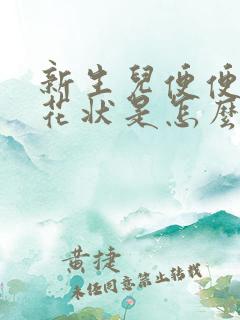 新生兒便便
花狀是怎麼
黄捷
未经同意禁止转载